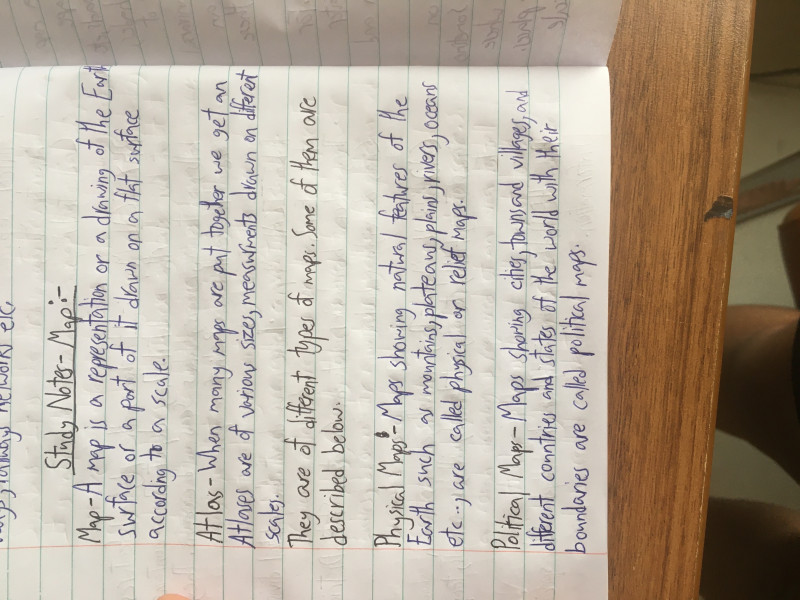 railway networks etc
Study Notes - Map :-
Map - A map is a representation or a drawing of the Earth
surface or a part of it drawn on a flat surface
according to a scale.
Atlas - When many maps are put together we get an
Atlases are of various sizes, measurments drawn on diferent
scales.
They are of different types of maps. Some of them are
described below.
Physical Maps - Maps showing natural features of the
Earth such as mountains, plateaus, plains, rivers, oceans
etc.., are called physical or relief maps.
Political Maps - Maps showing cities, towns and villages, and
different countries and states of the world with their
boundaries are called political maps.